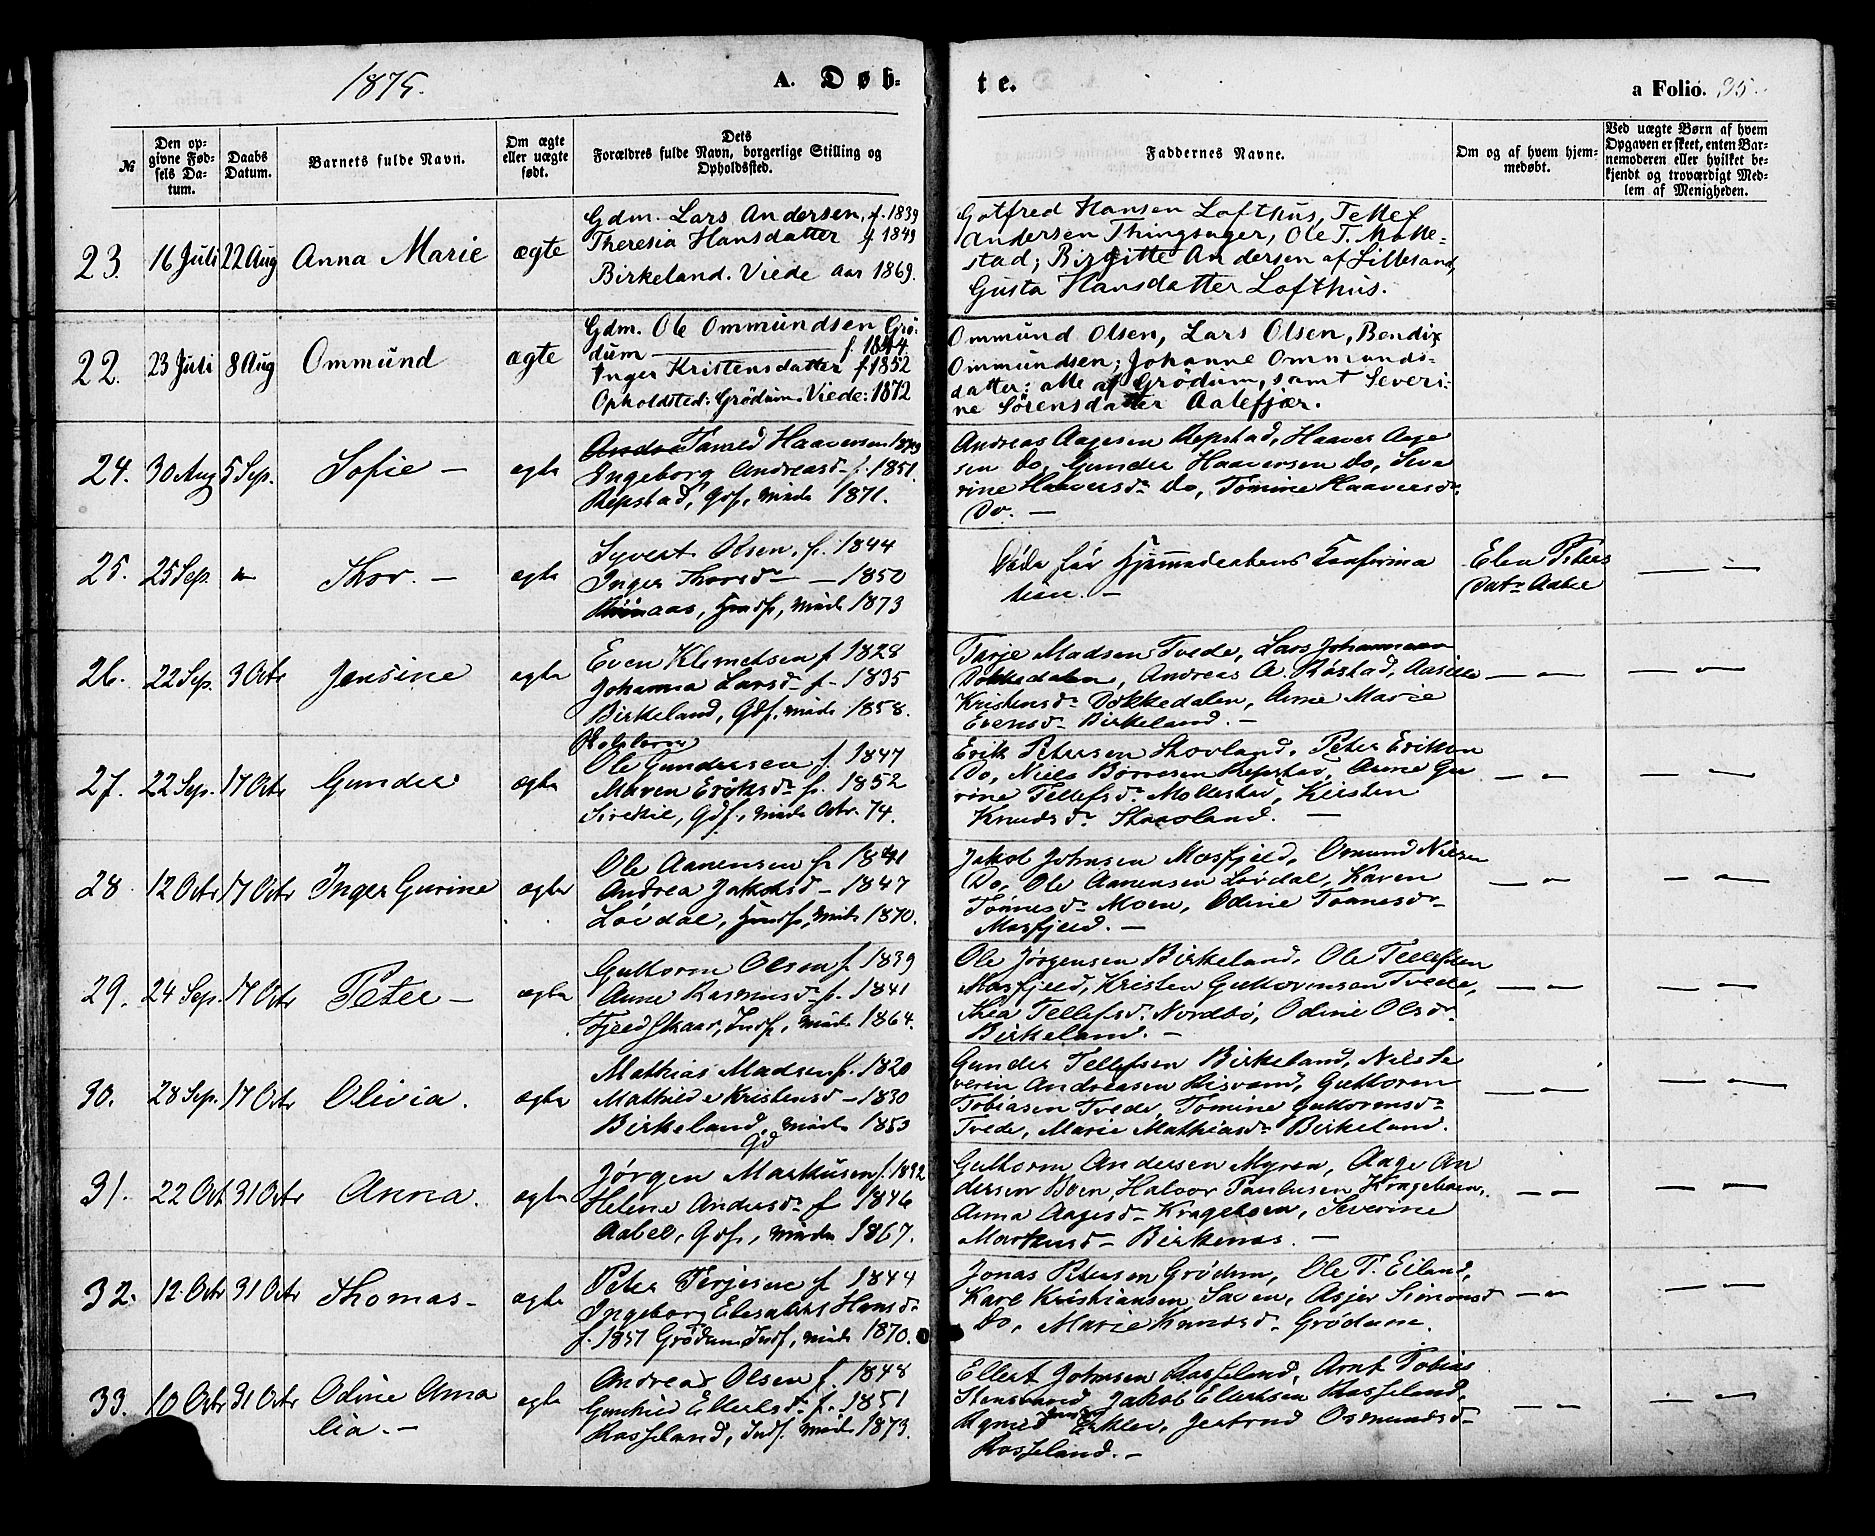 1875.
A. Døb-
te.
a Folio. 35.
№
Den op-
givne Fød-
sels Da-
tum.
Daabs
Datum.
Barnets fulde Navn.
Om ægte
eller uægte
født.
Dets
Forældres fulde Navn, borgerlige Stilling og
Opholdssted.
Faddernes Navne.
Om og af hvem hjem-
medøbt.
Ved uægte Børn af hvem
Opgaven er skeet, enten Bar-
nemoderen eller hvilket be-
kjendt og troværdigt Med-
lem af Menigheden.
23. 16 Juli 22 Aug Anna Marie ægte
Gdm. Lars Andersen, f. 1839
Theresia Hansdatter f 1849
Birkeland. Viede Aar 1869.
Gotfred Hansen Lofthus, Tellef
Andersen Thingsager, Ole T. Molle-
stad; Birgitte Andersen af Lillesand,
Gusta Hansdatter Lofthus.
22. 23 Juli 8 Aug Ommund ægte
Gdm. Ole Ommundsen Grö-
dum f. 1844
Inger Kristensdatter f. 1852
Opholdsted: Grödum. Viede: 1872
Ommund Olsen, Lars Olsen, Bendix
Ommundsen; Johanne Ommunds-
datter: alle af Grödum, samt Severi-
ne Sörensdatter Aalefjær.
24. 30 Aug 5 Sep. Sofie – ægte
Haaversen
Ingeborg Andreasd. f. 1851.
Repstad, Gdf, viede 1871.
Andreas Aagesen Repstad, Haaver Aage
sen Do, Gunder Haaversen Do, Seve
rine Haaversd. Do, Tomine Haaversd.
Do. –
25. 25 Sep. Thor. – ægte
Syvert Olsen, f. 1844
Inger Thorsd – 1850
viede 1873
Døde før Hjemmedaabens Konfirma
tion. –
Elen Peters
Datr Aabel
26. 22 Sep. 3 Octr Jensine ægte
Even Klemetsen f 1828
Johanna Larsd. f. 1835
Birkeland, Gdf, viede 1858.
Terje Madsen Tvede, Lars Johannesen
Dokkedalen, Andreas A. Røstad,
Kristensd. Dokkedalen, Anne Marie
Evensd. Birkeland. –
27. 22 Sep. 17 Octr Gunder ægte
Ole Gundersen f. 1847
Maren Eriksd. f. 1852
Gdf, viede Octr. 74.
Erik Petersen Skovland, Peter Eriksen
Do, Niels Børresen Repstad, Anne Gu
rine Tellefsd. Mollestad, Kirsten
Knudsd. Skovland. –
28. 12 Octr 17 Octr Inger Gurine ægte
Ole Aanensen f. 1841
Andrea Jakobsd – 1847
Løvdal, Husf, viede 1870.
Jakob Johnsen Mosfjeld, Omund Nielsen
Do, Ole Aanensen Løvdal, Karen
Tönnesd. Moen, Odine Tönnesd.
Mosfjeld. –
29. 24 Sep. 17 Octr Peter – ægte
Guttorm Olsen f. 1839
Anne Rasmusd. f. 1841
Fjeldskaar, Indf, viede 1864.
Ole Jørgensen Birkeland, Ole Tellefsen
Mosfjeld, Kristen Guttormsen Tvede,
Thea Tellefsd. Nordbö, Odine Olsd.
Birkeland. –
30. 28 Sep. 17 Octr Olivia. ægte
Mathias Madsen f. 1820
Mathilde Kristensd – 1830
Birkeland, viede 1853
Gd
Gunder Tellefsen Birkeland, Niels Se
verin Andreasen Risvand, Guttorm
Tobiasen Tvede, Tomine Guttormsd.
Tvede, Marie Mathiasd. Birkeland.
31. 22 Oct 31 Octr Anna. ægte
Jörgen Markusen f.
Helene Andersd. f 1846
Aabel, Gdf, viede 1867.
Guttorm Andersen Myren, Aage An
dersen Boen, Halvor Paulusen Krageboen,
Anna Aagesd. Krageboen, Severine
Markusd – Birkenes. –
32. 12 Octr 31 Octr Thomas – ægte
Peter Terjesen f 1844
Ingeborg Elisabet Hansd.
f. 1851 Grödum Indf, viede 1870.
Jonas Petersen Grödum, Ole T. Eiland,
Karl Kristiansen Saven, Asjer Simonsd
Do, Marie Knudsd. Grödum.
33. 10 Octr 31 Octr Odine Ama
lia. – ægte
Andreas Olsen f. 1848
Gunhild Ellertsd. f. 1851
Kasseland, Indf. viede 1873.
Ellert Johnsen Kasseland, Arnt Tobias
Stensvand, Jakob Ellertsen Kasseland,
Jertrud Osmundsd.
Kasseland. –